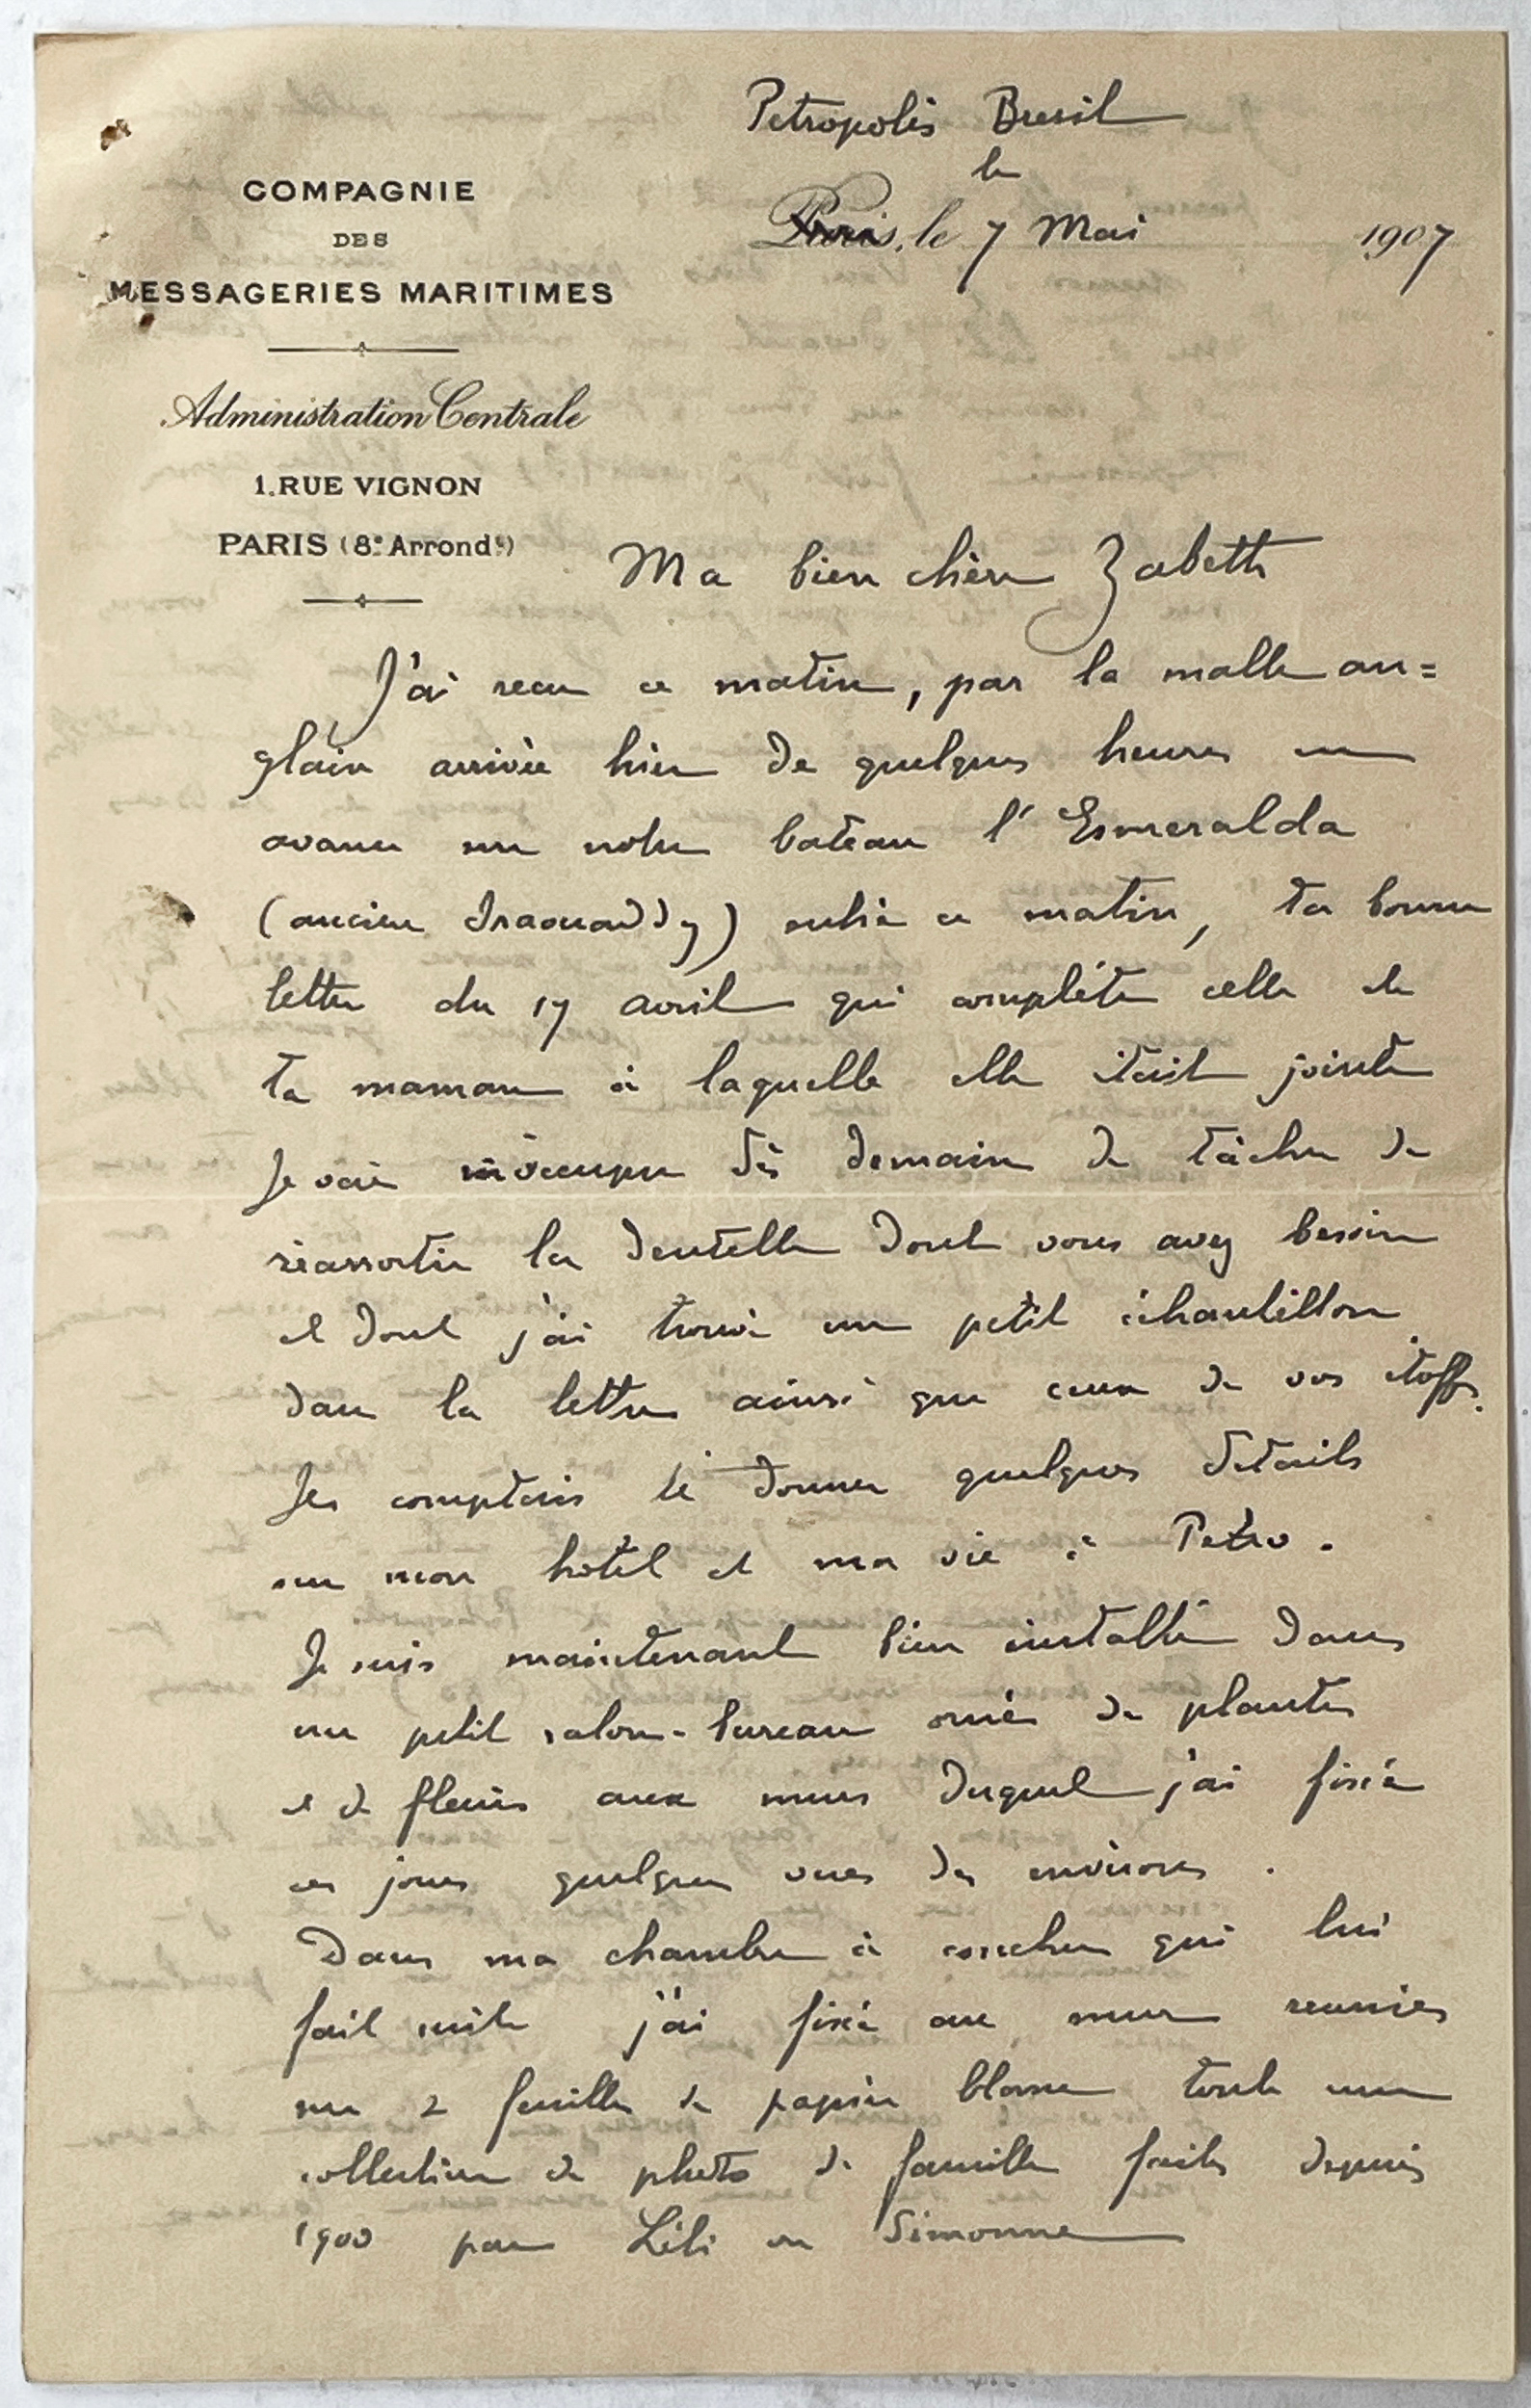 Petropolis Bresil
le
COMPAGNIE
DES
MESSAGERIES MARITIMES
Paris, le 7 Mai 1907
Administration Centrale
1. RUE VIGNON
PARIS (8e Arrondt)
Ma bien chère Zabeth
J'ai recu ce matin, par la malle an=
glaise arrivée hier de quelques heures en
avance sur notre bateau l'Esmeralda
(ancien Iraouaddy) entré ce matin, ta bonne
lettre du 17 avril qui complète celle de
ta maman à laquelle elle était jointe
Je vais m'occuper dès demain de tâcher de
réassortir la dentelle dont vous avez besoin
et dont j'ai trouvé un petit échantillon
dans la lettre ainsi que ceux de vos étoffes.
Je comptais te donner quelques détails
sur mon hotel et ma vie à Petro.
Je suis maintenant bien installé dans
un petit salon-bureau orné de plantes
et de fleurs aux murs duquel j'ai fixé
ces jours quelques vues des environs.
Dans ma chambre à coucher qui lui
fait suite j'ai fixé au mur reunies
sur 2 feuilles de papier blanc toute une
collection de photos de famille faites depuis
1900 par Lili ou Simonne